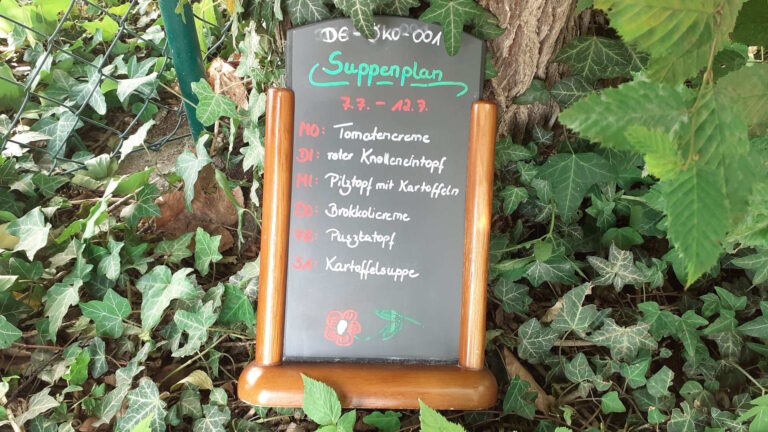 DE-ÖKO-001
Suppenplan
7.7. - 12.7.
MO: Tomatencreme
DI: roter Knolleneintopf
MI: Pilztopf mit Kartoffeln
DO: Brokkolicreme
FR: Pusztatopf
SA: Kartoffelsuppe